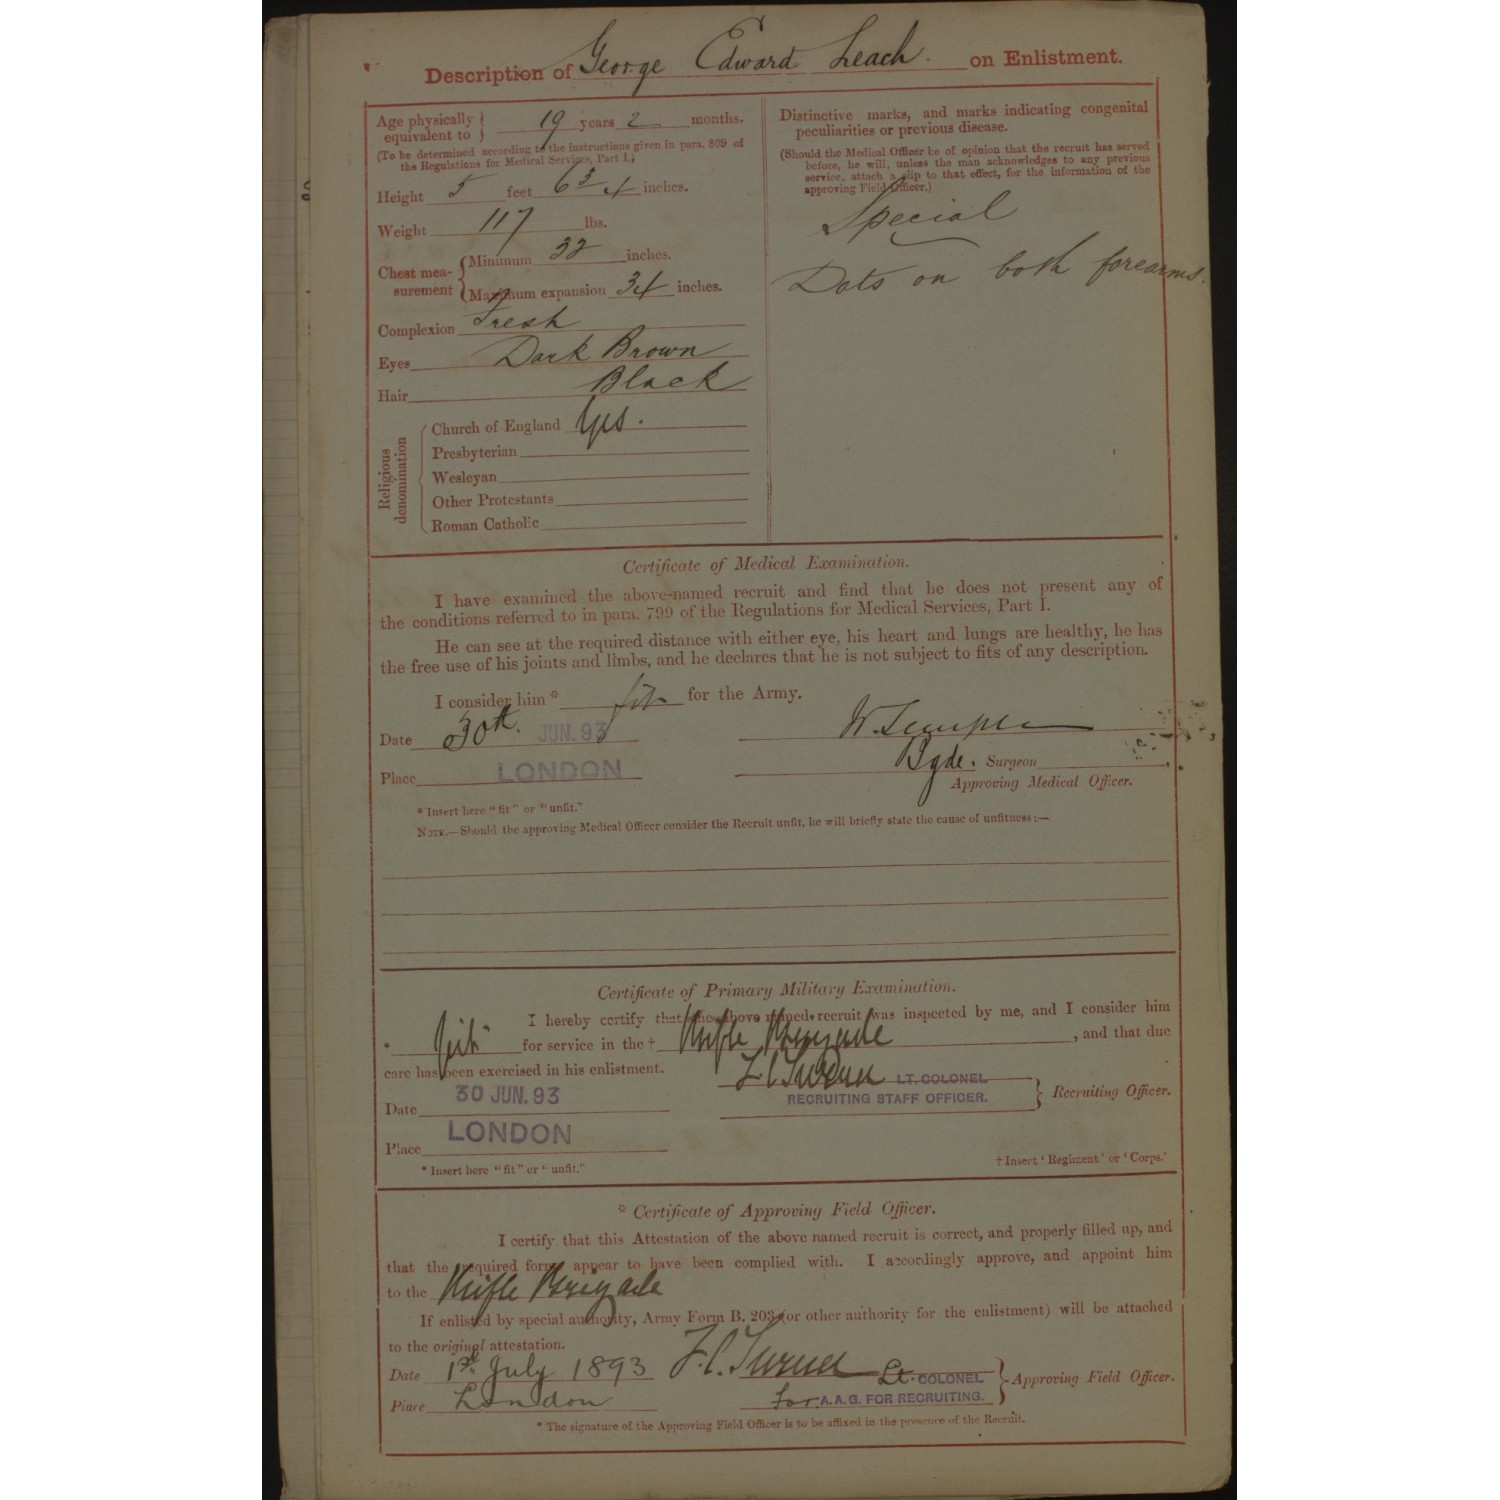 Description of George Edward Leach. on Enlistment.
Age physically equivalent to 19 years 2 months.
(To be determined according to the instructions given in para. 809 of
the Regulations for Medical Services, Part I.)
Height 5 feet 6 3/4 inches.
Weight 117 lbs.
Chest measurement Minimum 32 inches.
Maximum expansion 34 inches.
Complexion Fresh
Eyes Dark Brown
Hair Black
Religious denomination
Church of England Yes.
Presbyterian
Wesleyan
Other Protestants
Roman Catholic
Distinctive marks, and marks indicating congenital
peculiarities or previous disease.
(Should the Medical Officer be of opinion that the recruit has served
before, he will, unless the man acknowledges to any previous
service, attach a slip to that effect, for the information of the
approving Field Officer.)
Special
Dots on both forearms.
Certificate of Medical Examination.
I have examined the above-named recruit and find that he does not present any of
the conditions referred to in para. 799 of the Regulations for Medical Services, Part I.
He can see at the required distance with either eye, his heart and lungs are healthy, he has
the free use of his joints and limbs, and he declares that he is not subject to fits of any description.
I consider him * fit for the Army.
Date 30th. JUN. 93
Place LONDON
Bgde. Surgeon
Approving Medical Officer.
* Insert here "fit" or "unfit."
NOTE.—Should the approving Medical Officer consider the Recruit unfit, he will briefly state the cause of unfitness:—
Certificate of Primary Military Examination.
I hereby certify that the above named recruit was inspected by me, and I consider him
* fit for service in the † Rifle Brigade, and that due
care has been exercised in his enlistment.
F.C. Turner LT. COLONEL
RECRUITING STAFF OFFICER. Recruiting Officer.
Date 30 JUN. 93
Place LONDON
* Insert here "fit" or "unfit."
† Insert 'Regiment' or 'Corps.'
* Certificate of Approving Field Officer.
I certify that this Attestation of the above named recruit is correct, and properly filled up, and
that the required forms appear to have been complied with. I accordingly approve, and appoint him
to the Rifle Brigade
If enlisted by special authority, Army Form B. 203 (or other authority for the enlistment) will be attached
to the original attestation.
Date 1st July 1893 F.C. Turner Lt. COLONEL Approving Field Officer.
Place London for A.A.G. FOR RECRUITING.
* The signature of the Approving Field Officer is to be affixed in the presence of the Recruit.